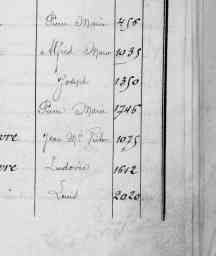 Pierre Marie 456
Alfred Marie 1035
Joseph 1350
Pierre Marie 1746
vre Jean Mie 1075
vre Ludovic 1612
Louis 2020